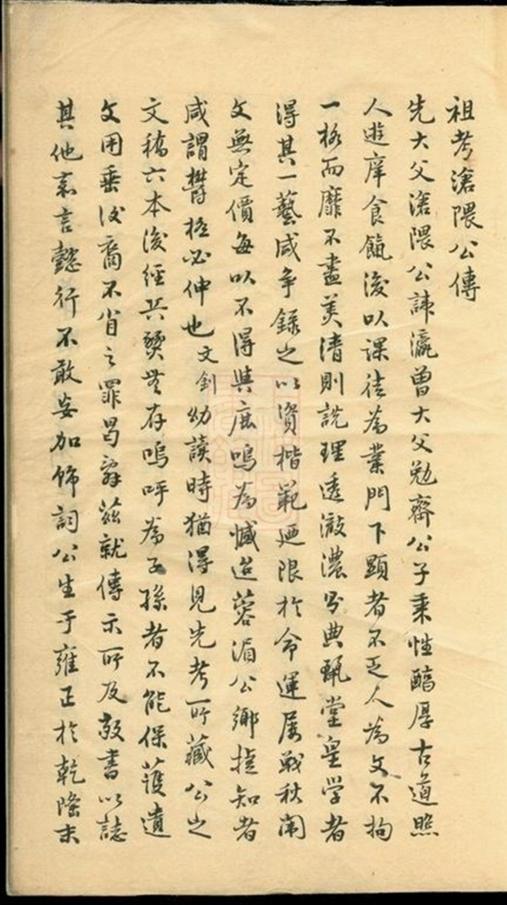 祖考滄隈公傳
先大父滄隈公諱瀛曾大父勉齋公子秉性醕厚古道照
人遊庠食餼後以課徒為業門下顯者不乏人為文不拘
一格而靡不盡美清則說理透澈濃則典甄堂皇學者
得其一藝咸争錄之以資楷範廼限於命運屢戰秋闈
文無定價每以不得與鹿鳴為憾迨蓉湄公鄉捷知者
咸謂欝極必伸也文釗幼讀時猶得見先考所藏公之
文稿六本後經兵燹無存嗚呼為子孫者不能保護遺
文用垂後裔不省之罪曷辭茲就傳示所及敬書以誌
其他嘉言懿行不敢妄加飾詞公生于雍正於乾隆末